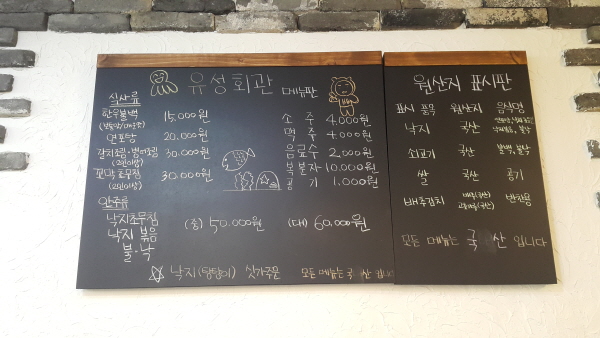 유성회관 메뉴판
식사류
한우불백 15,000원
연포탕 20,000원
갈치조림·병어조림 30,000원
(2인이상)
꼬막초무침 30,000원
(2인이상)
소주 4,000원
맥주 4,000원
음료수 2,000원
복분자 10,000원
공기 1,000원
안주류
낙지초무침
낙지볶음
불·낙
(중) 50,000원 (대) 60,000원
낙지(탕탕이) 싯가주문 모든 메뉴는 국산입니다
원산지 표시판
표시 품목 원산지 음식명
낙지 국산
쇠고기 국산 불백, 불낙
쌀 국산 공기
배추김치 배추(국산) 반찬용
고춧가루(국산)
모든 메뉴는 국산 입니다